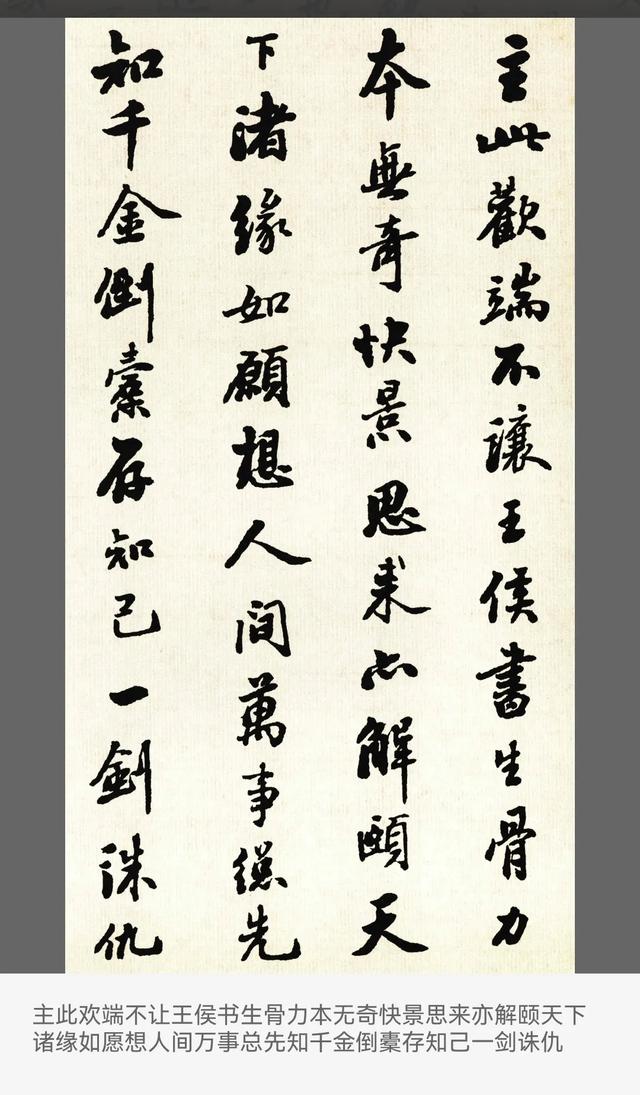 主此歡端不讓王侯書生骨力
本無奇快景思来亦解頤天
下渚緣如願想人間萬事總先
知千金倒橐存知己一劍誅仇
主此欢端不让王侯书生骨力本无奇快景思来亦解颐天下
诸缘如愿想人间万事总先知千金倒橐存知己一剑诛仇